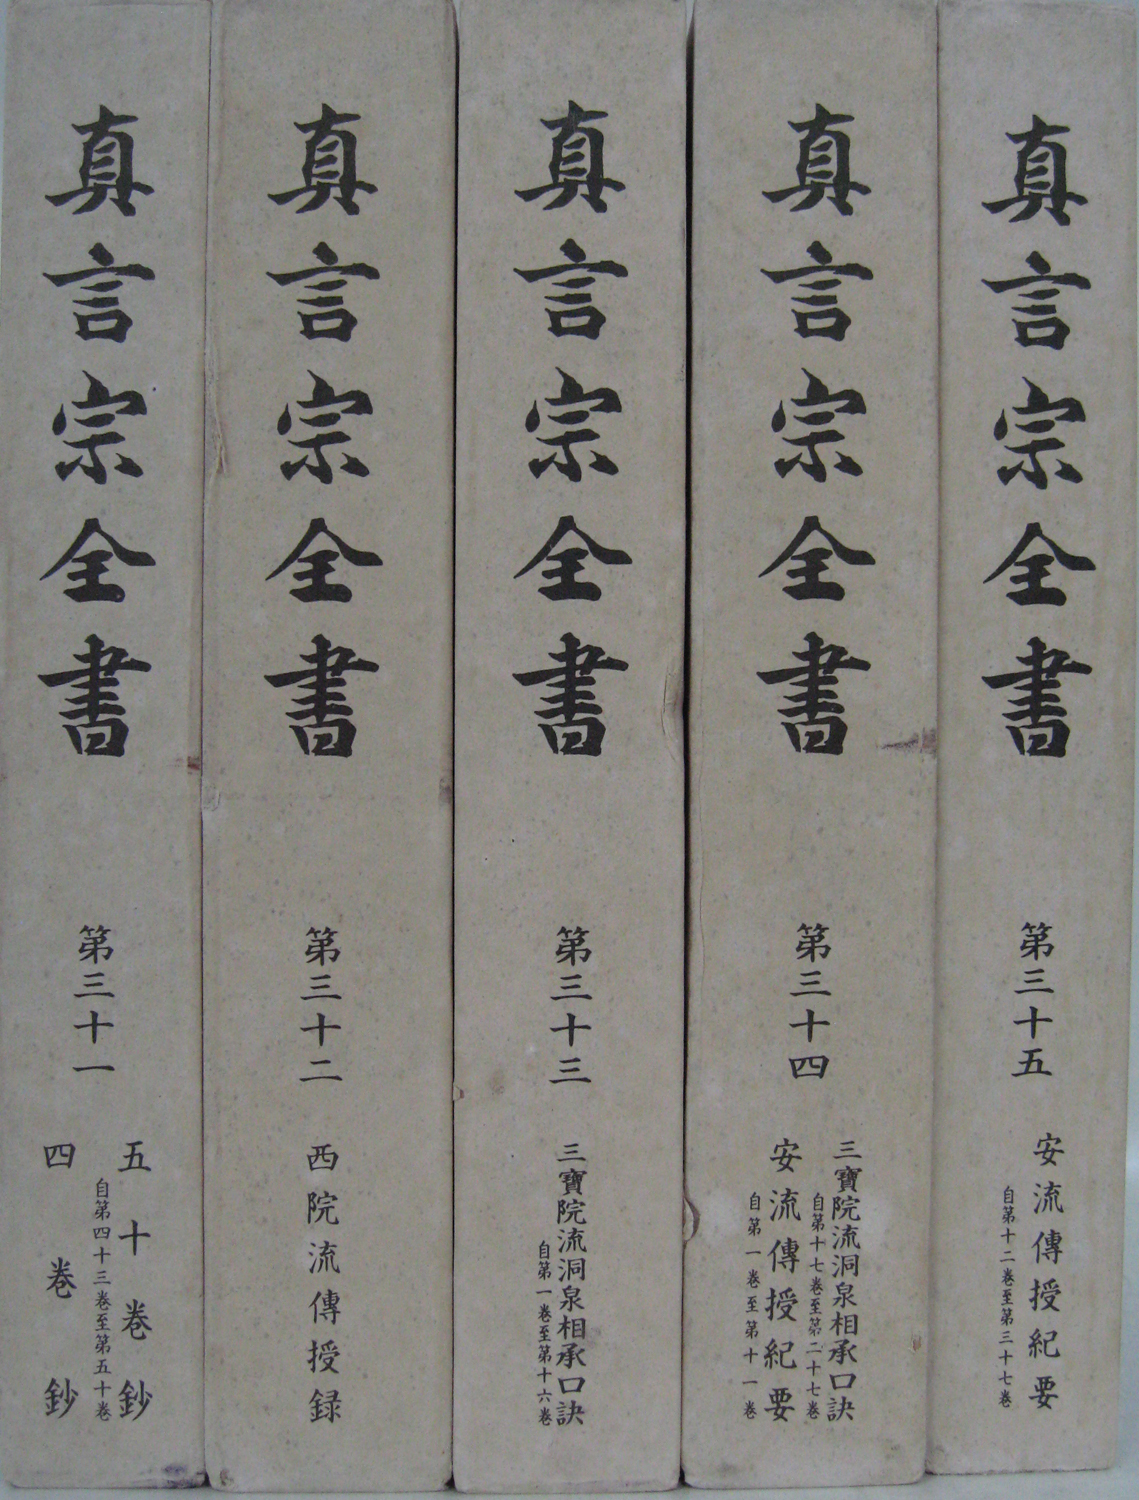 真言宗全書
第三十一
五十巻鈔
自第四十三巻至第五十巻
四巻鈔
真言宗全書
第三十二
西院流傳授録
真言宗全書
第三十三
三寶院流洞泉相承口訣
自第一巻至第十六巻
真言宗全書
第三十四
三寶院流洞泉相承口訣
自第十七巻至第二十七巻
安流傳授紀要
自第一巻至第十一巻
真言宗全書
第三十五
安流傳授紀要
自第十二巻至第三十七巻